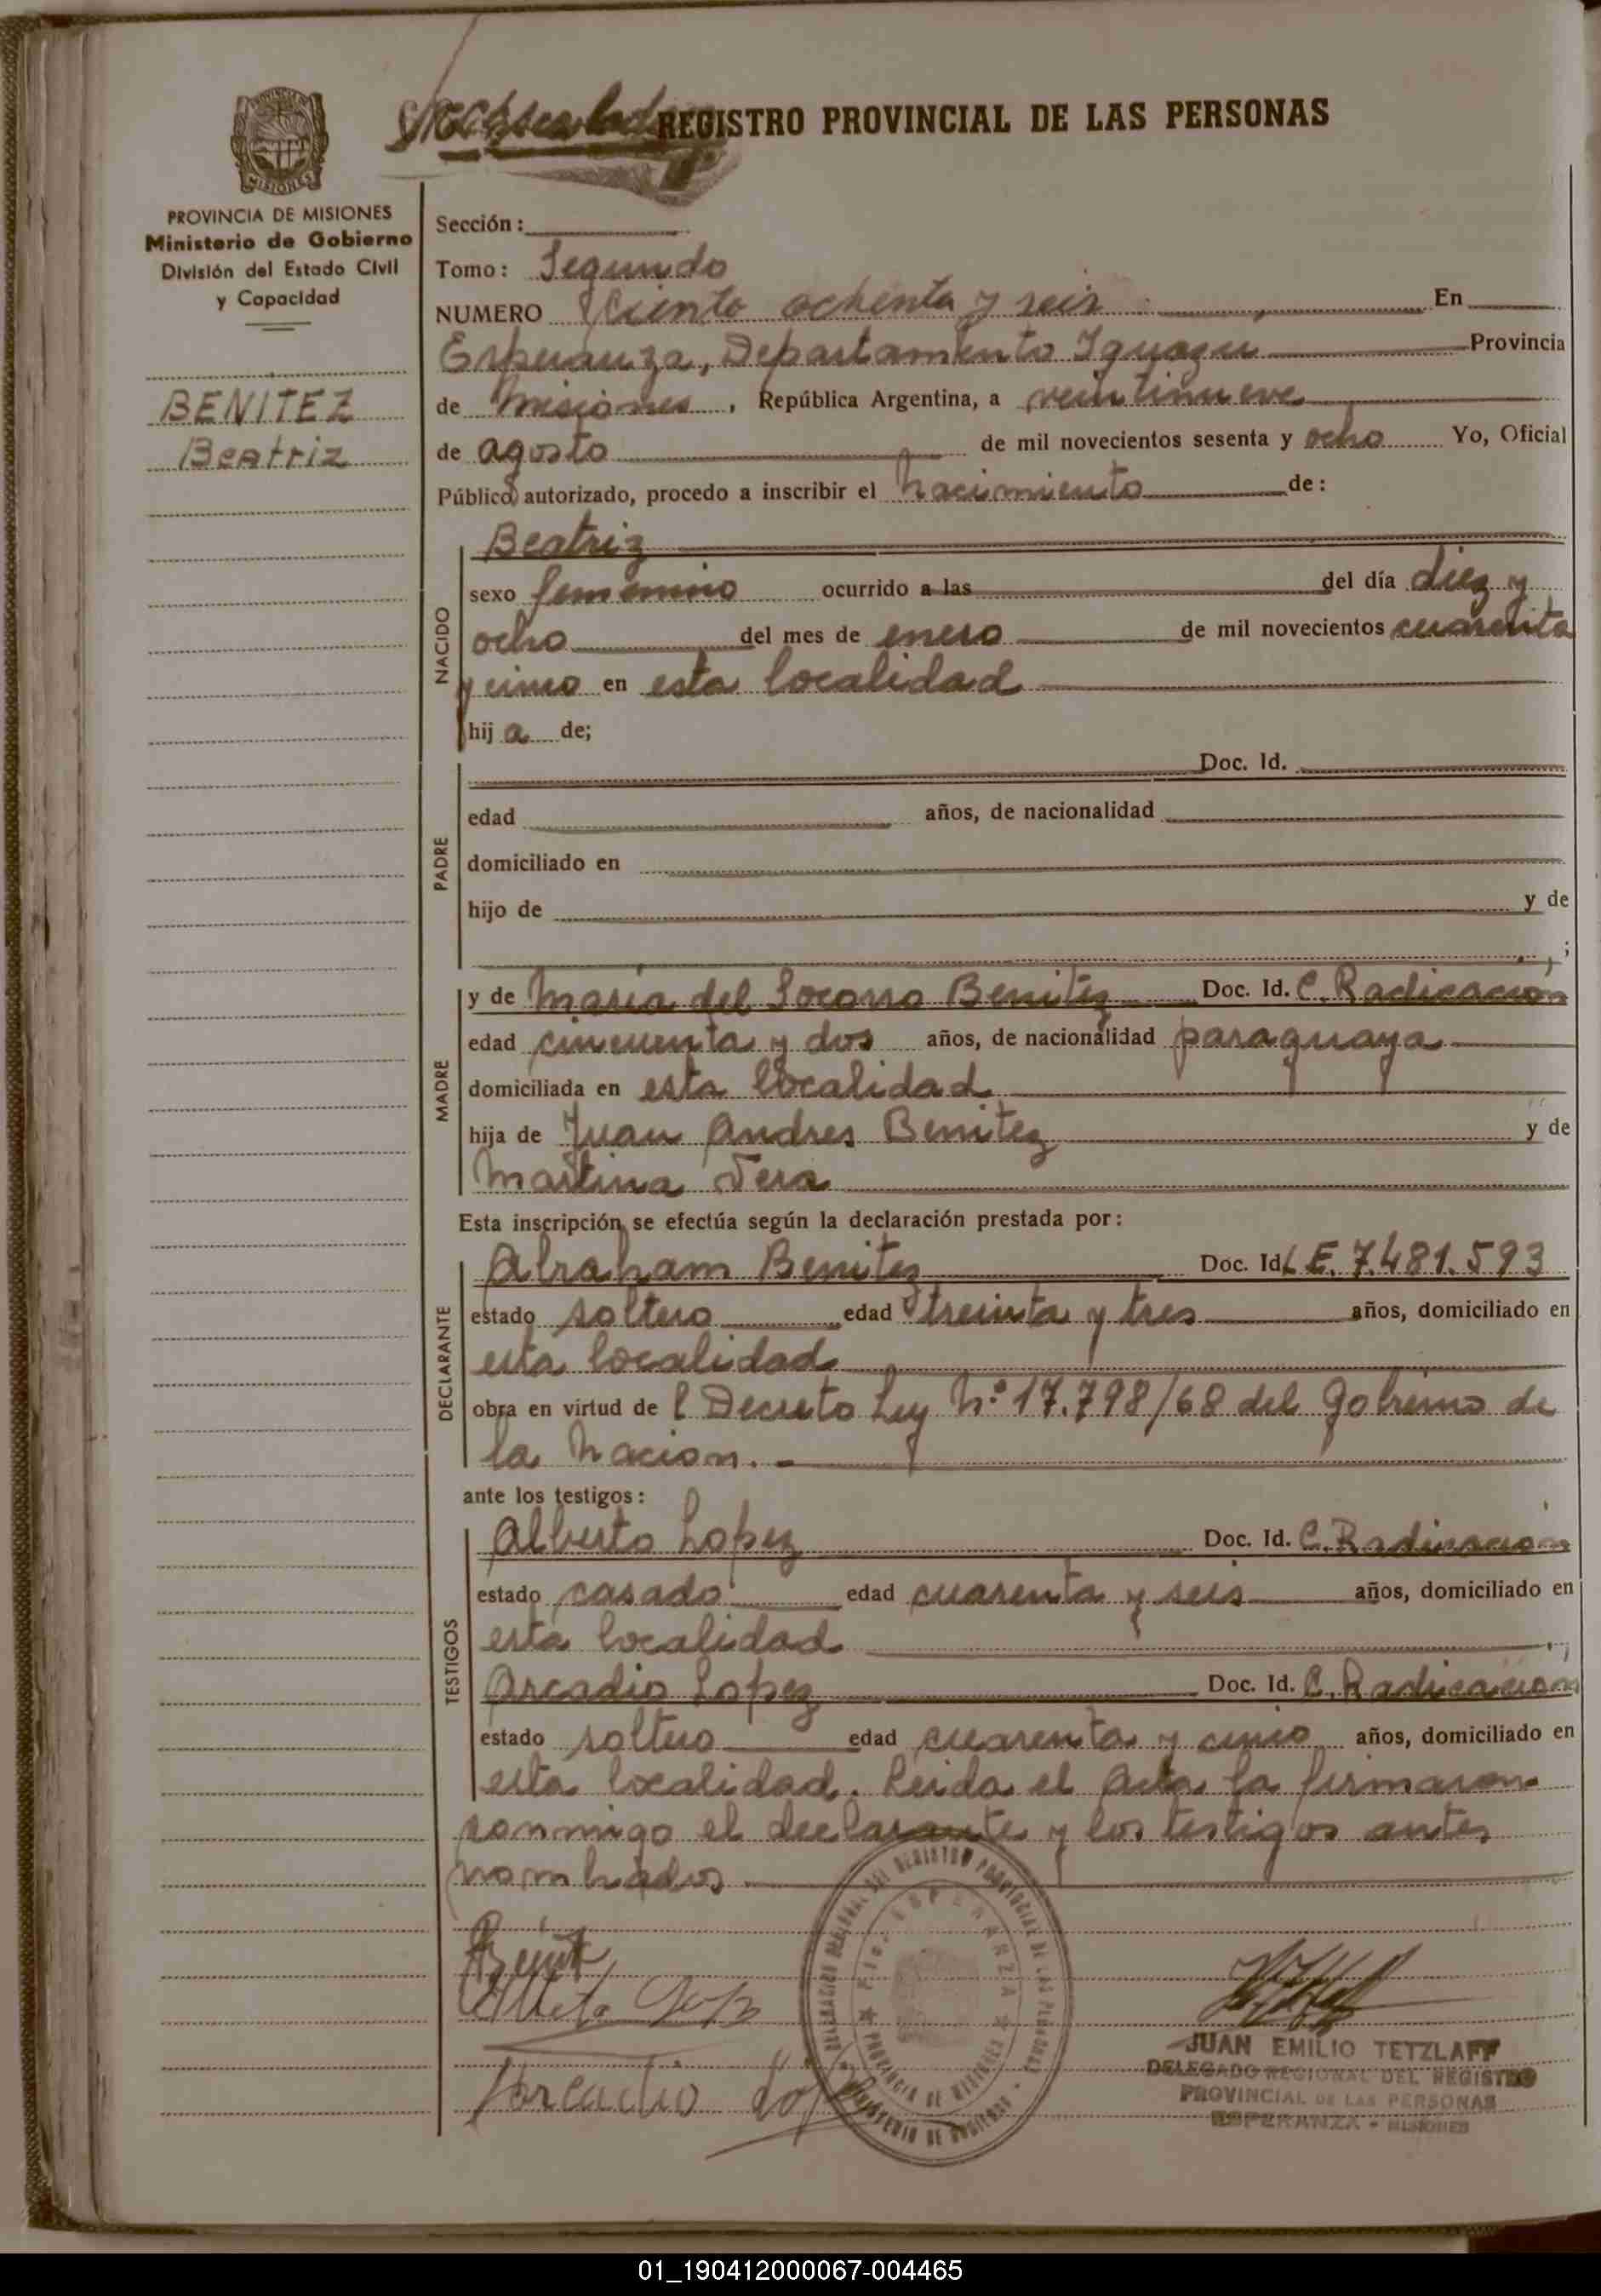 REGISTRO PROVINCIAL DE LAS PERSONAS
PROVINCIA DE MISIONES
Ministerio de Gobierno
División del Estado Civil
y Capacidad
BENITEZ
Beatriz
Sección:
Tomo: Segundo
NUMERO Ciento ochenta y seis En
Esperanza, Departamento Iguazu Provincia
de Misiones, República Argentina, a veintinueve
de agosto de mil novecientos sesenta y ocho Yo, Oficial
Público autorizado, procedo a inscribir el nacimiento de:
NACIDO
Beatriz
sexo femenino ocurrido a las del día diez y
ocho del mes de enero de mil novecientos cuarenta
y cinco en esta localidad
hij a de;
PADRE
Doc. Id.
edad años, de nacionalidad
domiciliado en
hijo de y de
MADRE
y de Maria del Socorro Benitez Doc. Id. C. Radicacion
edad cincuenta y dos años, de nacionalidad paraguaya
domiciliada en esta localidad
hija de Juan Andres Benitez y de
Martina Vera
Esta inscripción se efectúa según la declaración prestada por:
DECLARANTE
Abraham Benitez Doc. Id. L E. 7.481.593
estado soltero edad treinta y tres años, domiciliado en
esta localidad
obra en virtud de l Decreto Ley Nº 17.798/68 del Gobierno de
la Nacion.
ante los testigos:
TESTIGOS
Alberto Lopez Doc. Id. C. Radicacion
estado casado edad cuarenta y seis años, domiciliado en
esta localidad
Arcadio Lopez Doc. Id. C. Radicacion
estado soltero edad cuarenta y cinco años, domiciliado en
esta localidad. Leida el Acta la firmaron
conmigo el declarante y los testigos antes
nombrados
Arcadio
JUAN EMILIO TETZLAFF
DELEGADO REGIONAL DEL REGISTRO
PROVINCIAL DE LAS PERSONAS
ESPERANZA - MISIONES
01_190412000067-004465